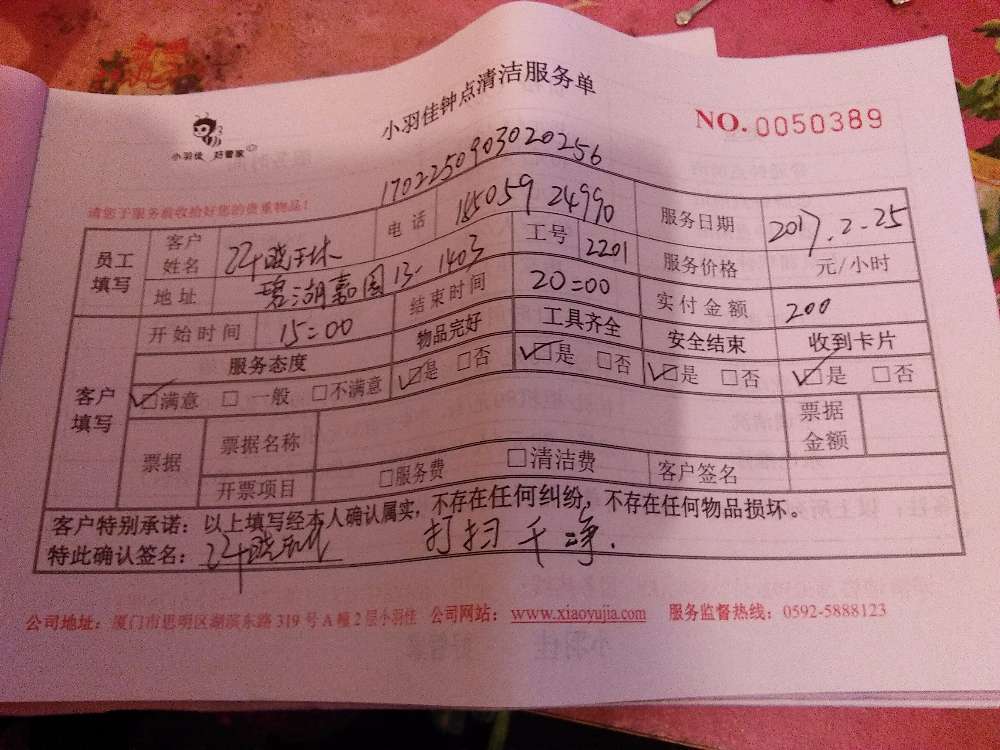 小羽佳钟点清洁服务单
NO.0050389
小羽佳 好管家
1702250903020256
请您于服务前收拾好您的贵重物品！
员工填写 客户姓名 电话 18505924990 服务日期 2017.2.25
地址 碧湖嘉园13-1403 工号 2201 服务价格 元/小时
客户填写 开始时间 15:00 结束时间 20:00 实付金额 200
服务态度 物品完好 工具齐全 安全结束 收到卡片
☑满意 □一般 □不满意 ☑是 □否 ☑是 □否 ☑是 □否 ☑是 □否
票据 票据名称 票据金额
开票项目 □服务费 □清洁费 客户签名
客户特别承诺：以上填写经本人确认属实，不存在任何纠纷，不存在任何物品损坏。
特此确认签名： 打扫干净.
公司地址：厦门市思明区湖滨东路319号A幢2层小羽佳 公司网站：www.xiaoyujia.com 服务监督热线：0592-5888123